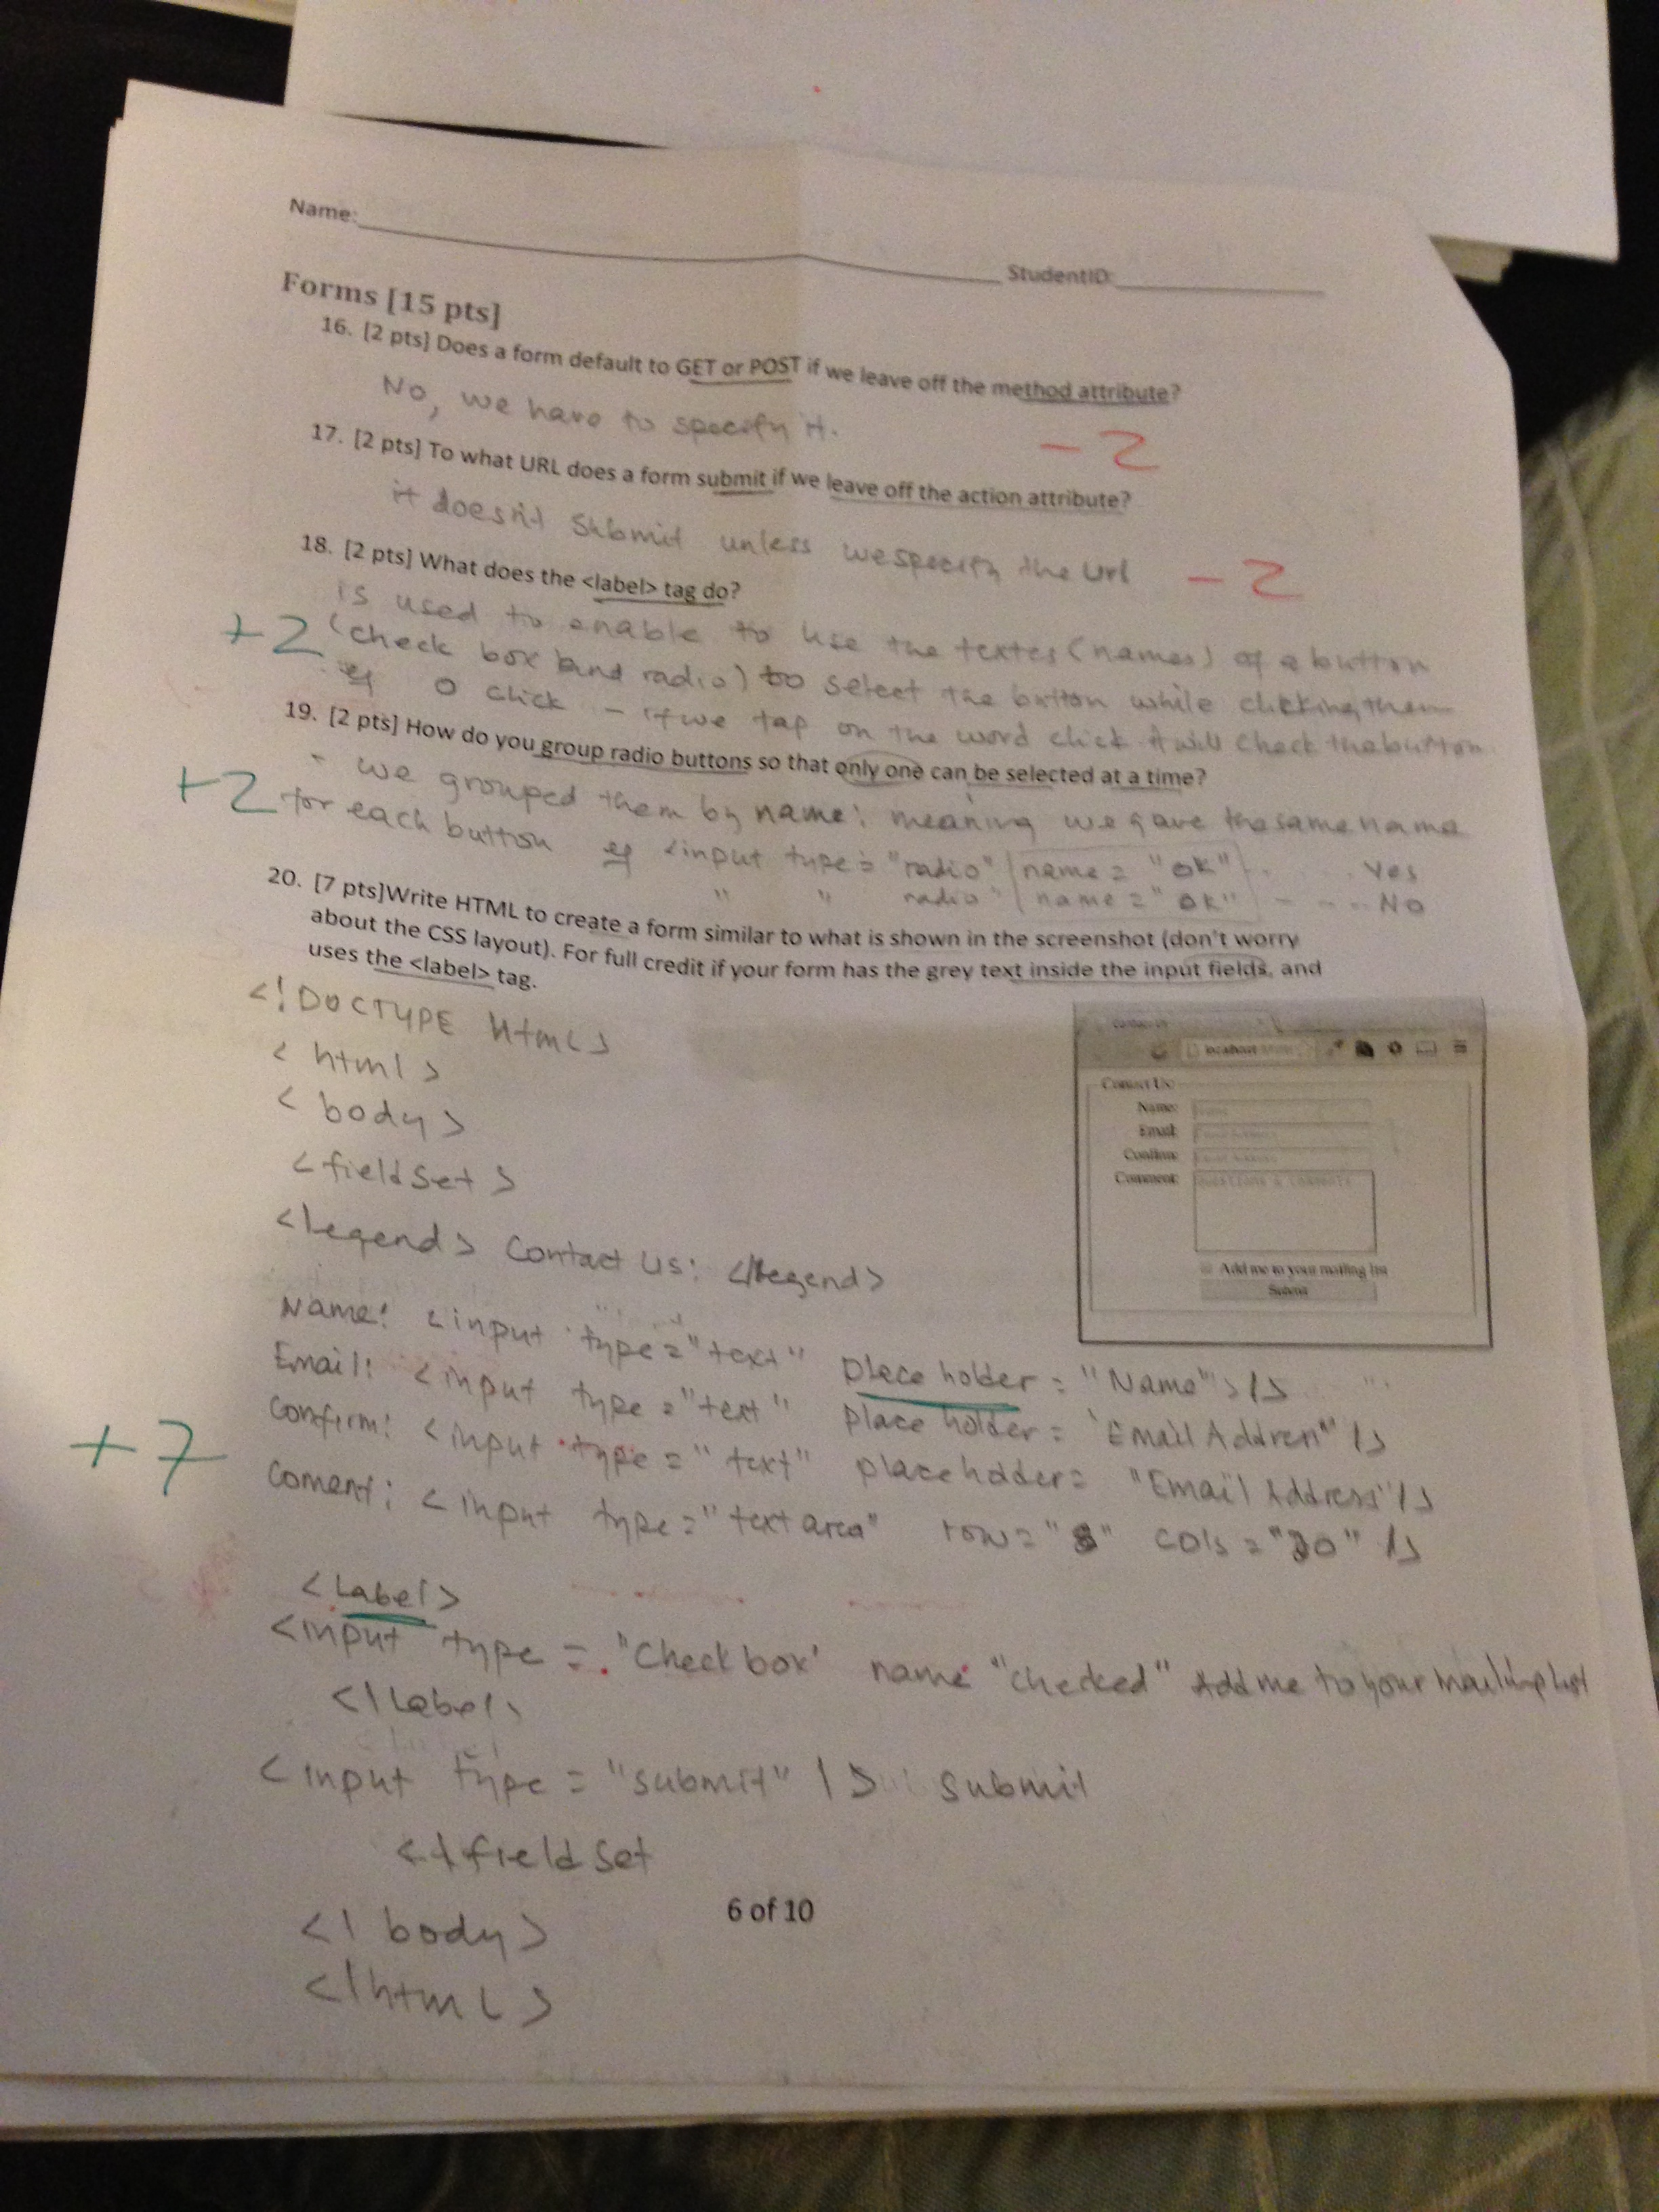 Name:
StudentID:
Forms [15 pts]
16. [2 pts] Does a form default to GET or POST if we leave off the method attribute?
No, we have to specify it.
-2
17. [2 pts] To what URL does a form submit if we leave off the action attribute?
it doesn't submit unless we specify the url
-2
18. [2 pts] What does the <label> tag do?
is used to enable to use the textes (names) of a button
+2
(check box and radio) to select the button while clicking them
eg o click - if we tap on the word click it will check the button
19. [2 pts] How do you group radio buttons so that only one can be selected at a time?
- we grouped them by name: meaning we gave the same name
+2
for each button eg <input type = "radio" name = "ok" . . . . Yes
" " radio" name = "ok" - - - - No
20. [7 pts]Write HTML to create a form similar to what is shown in the screenshot (don't worry
about the CSS layout). For full credit if your form has the grey text inside the input fields, and
uses the <label> tag.
<!DOCTYPE html>
<html>
<body>
<fieldset>
<legend> Contact Us: </legend>
Contact Us
Name:
Email:
Confirm:
Comment:
Questions & Comments
Add me to your mailing list
Submit
Name: <input type = "text" place holder = "Name" />
Email: <input type = "text" place holder = "Email Address" />
Confirm: <input type = "text" placeholder = "Email Address" />
+7
Coment: <input type = "text area" row = "8" cols = "30" />
<Label>
<input type = "Check box' name "checked" Add me to your mailing list
</Label>
<input type = "submit" /> submit
</fieldset
</body>
</html>
6 of 10